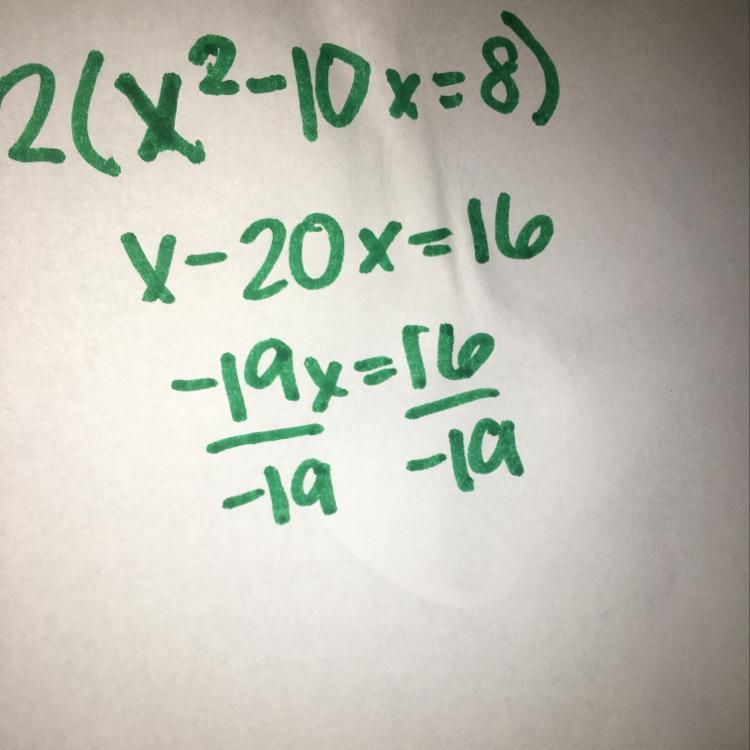 2(x²-10x=8)
x-20x=16
-19x=16
-19 -19